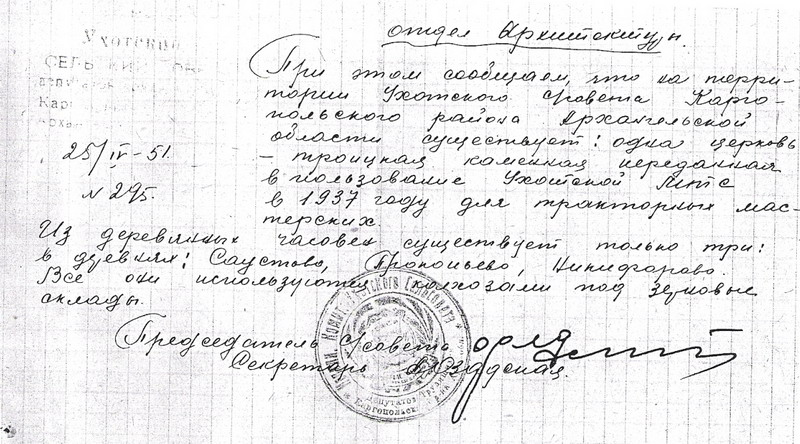 отдел Архитектуры.
Ухотский
25/IV-51.
N 295.
При этом сообщаем, что на терри-
тории Ухотского с/совета Карго-
польского района Архангельской
области существует: одна церковь
– троицкая каменная переданная
в пользование Ухотской МТС
в 1937 году для тракторных мас-
терских.
Из деревянных часовен существует только три:
в дуевнях: Саустово, Прокопьево, Никифорово.
Все они используются колхозами под зерновые
склады.
Председатель с/совета
Секретарь